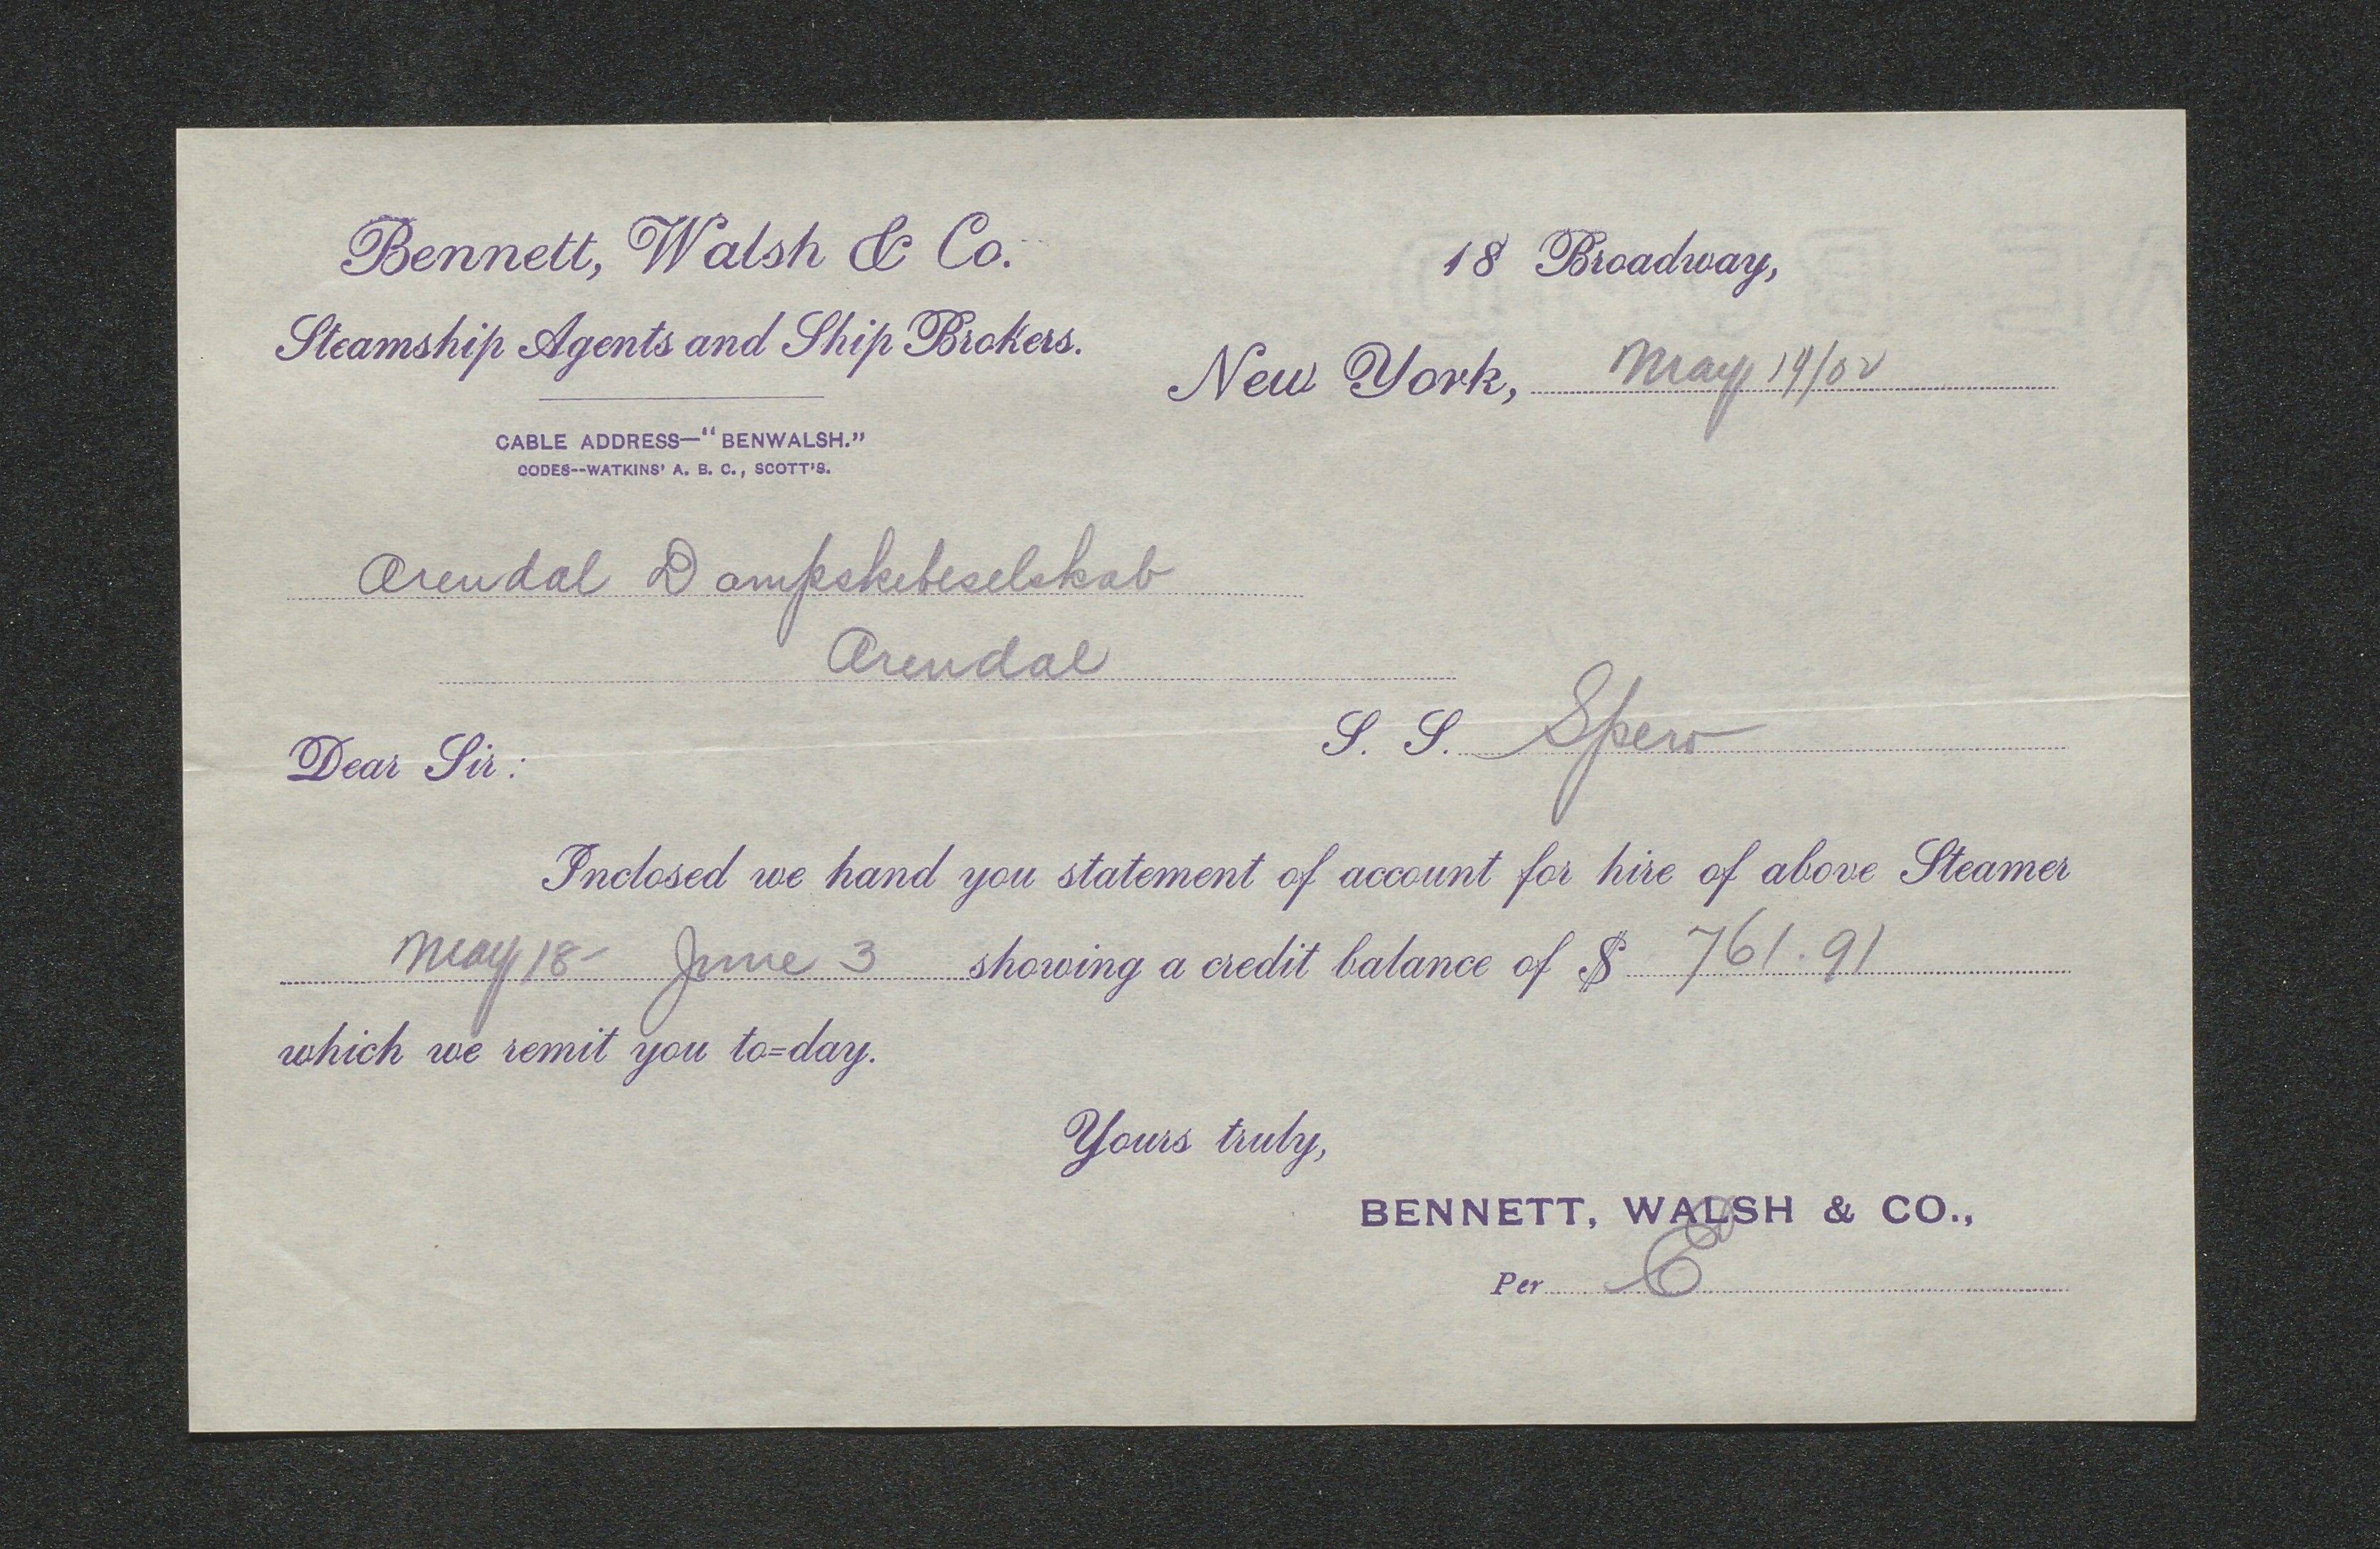 Bennett, Walsh & Co.
Steamship Agents and Ship Brokers.
CABLE ADDRESS—"BENWALSH."
CODES--WATKINS' A. B. C., SCOTT'S.
18 Broadway,
New York, May 19/02
Arendal Dampskebeselskab
Arendal
S. S. Spero
Dear Sir:
Inclosed we hand you statement of account for hire of above Steamer
May 18 - June 3 showing a credit balance of $ 761.91
which we remit you to=day.
Yours truly,
BENNETT, WALSH & CO.,
Per